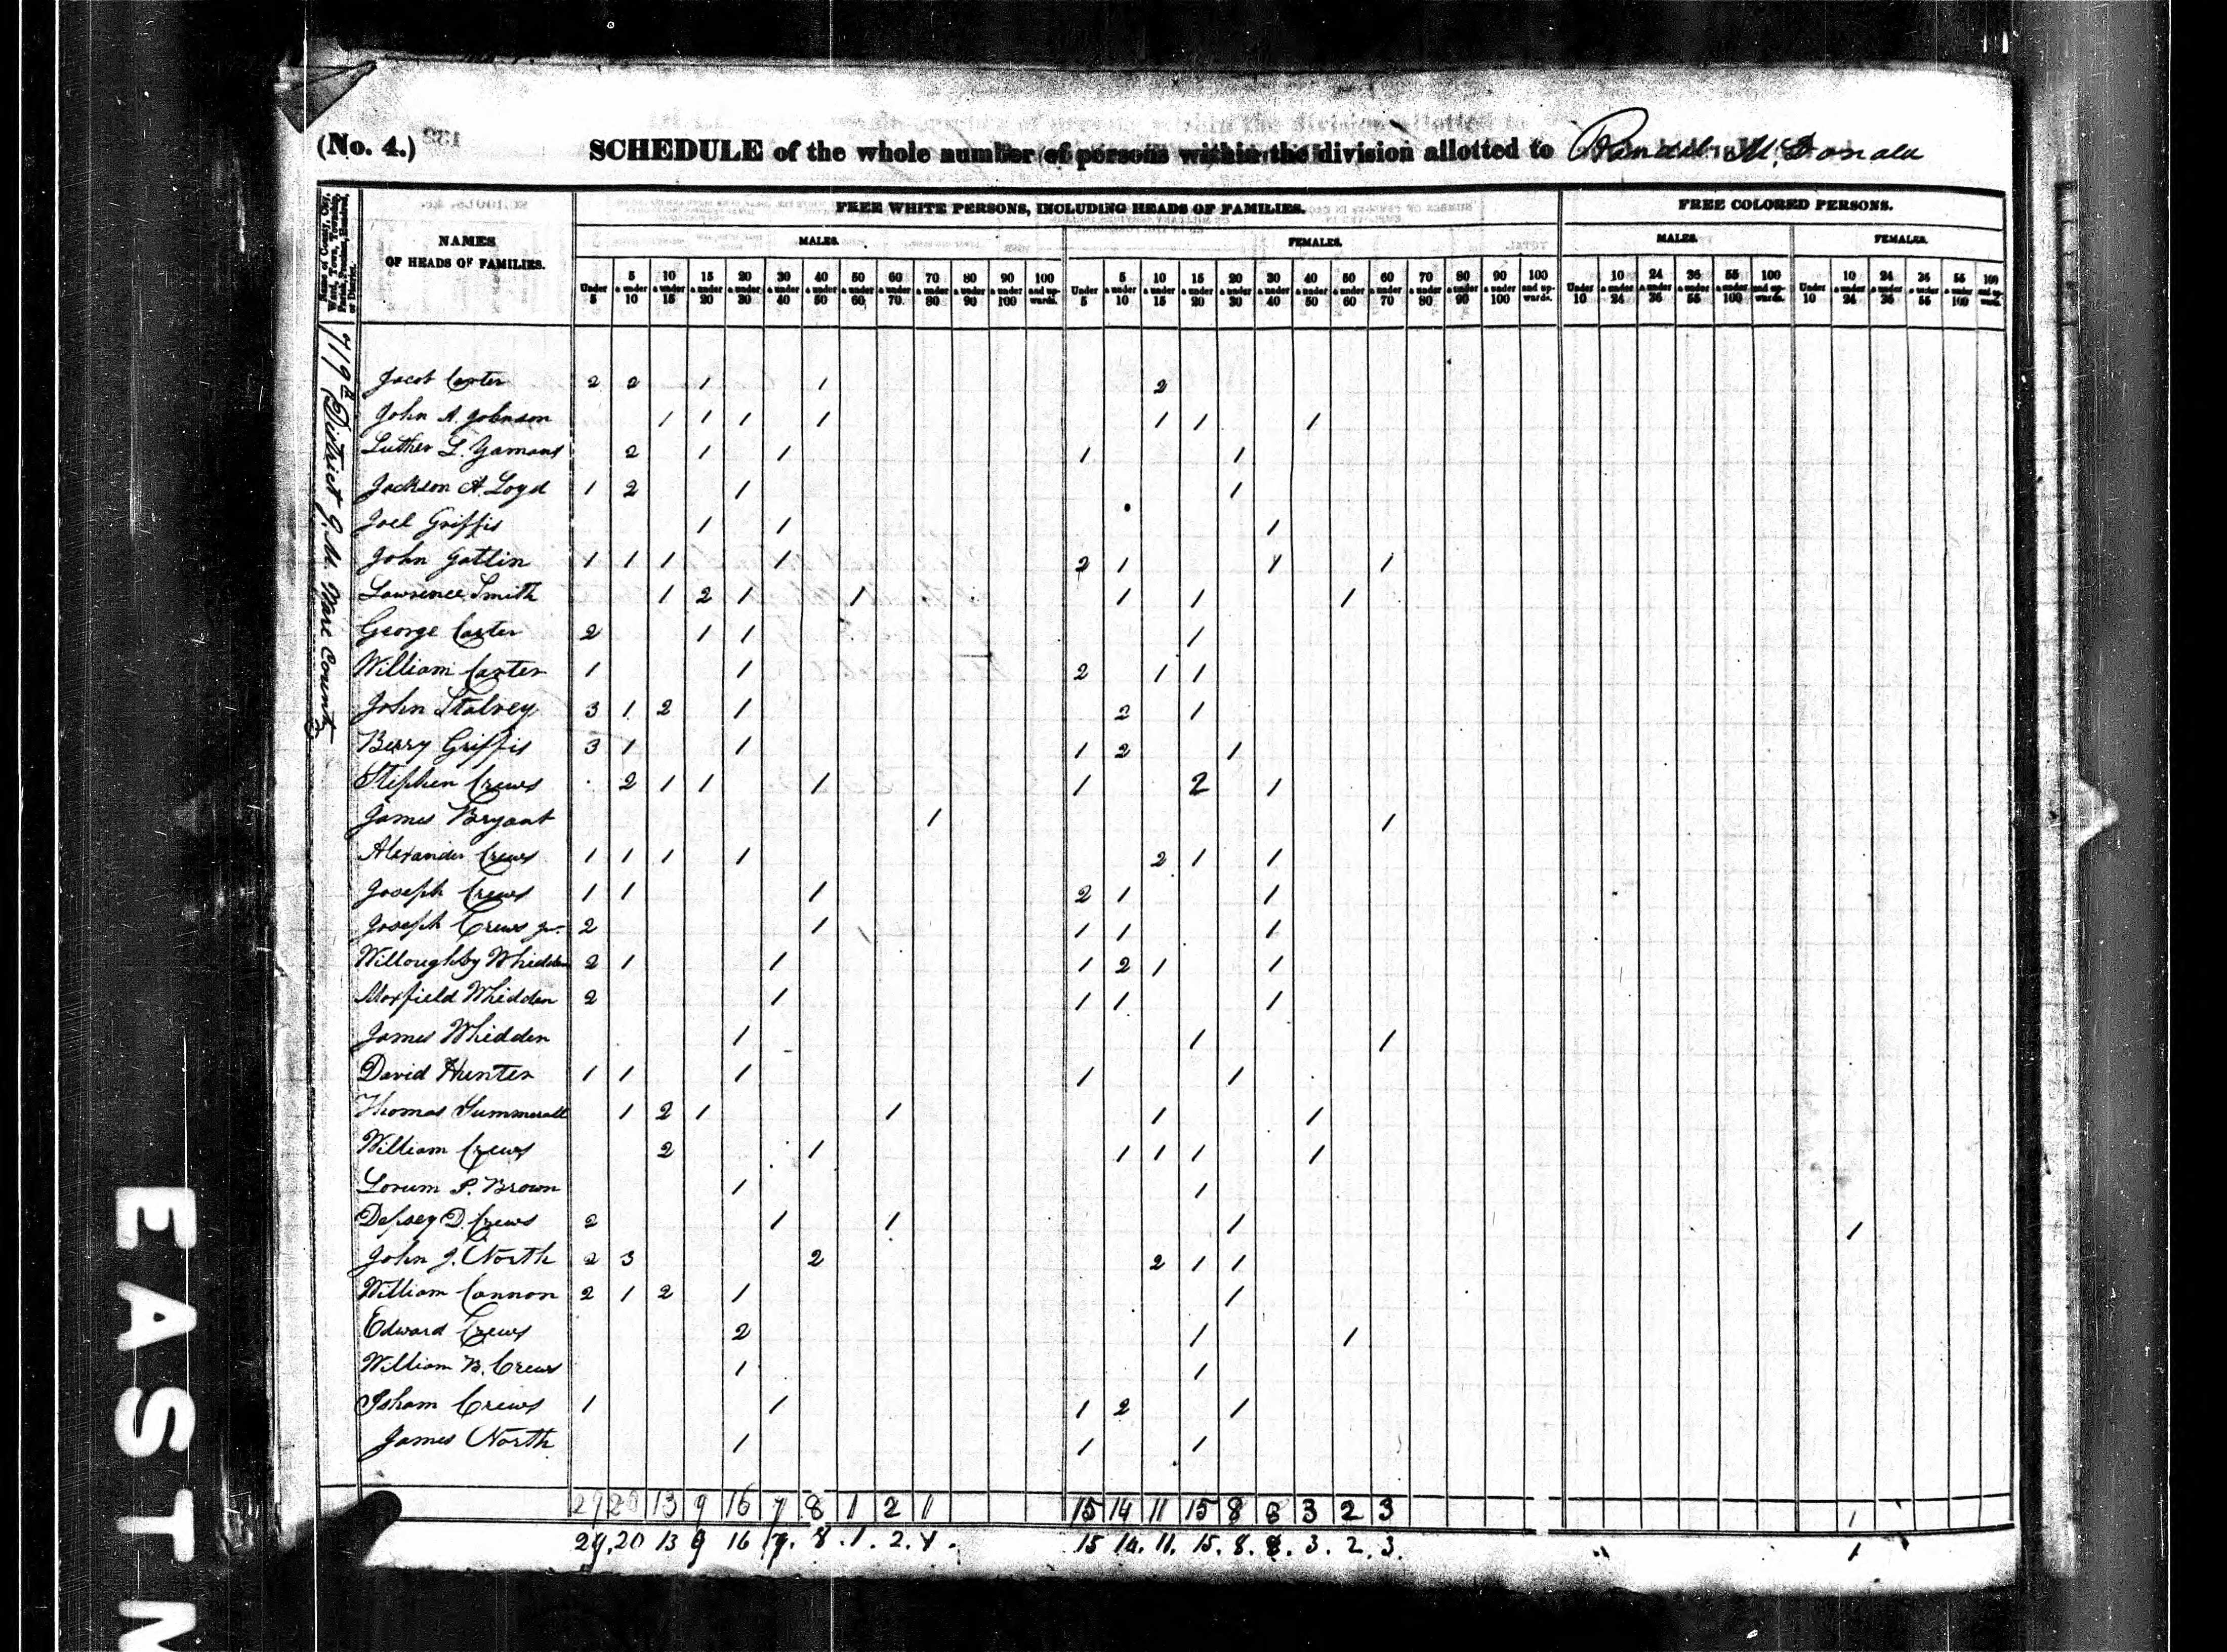 (No. 4.)
SCHEDULE of the whole number of persons within the division allotted to Randal McDonald
Name of County, City, Ward, Town, Township, Parish, Precinct, Hundred, or District.
NAMES OF HEADS OF FAMILIES.
FREE WHITE PERSONS, INCLUDING HEADS OF FAMILIES.
FREE COLORED PERSONS.
MALES. FEMALES. MALES. FEMALES.
Under 5 | 5 & under 10 | 10 & under 15 | 15 & under 20 | 20 & under 30 | 30 & under 40 | 40 & under 50 | 50 & under 60 | 60 & under 70 | 70 & under 80 | 80 & under 90 | 90 & under 100 | 100 and upwards. | Under 5 | 5 & under 10 | 10 & under 15 | 15 & under 20 | 20 & under 30 | 30 & under 40 | 40 & under 50 | 50 & under 60 | 60 & under 70 | 70 & under 80 | 80 & under 90 | 90 & under 100 | 100 and upwards. | Under 10 | 10 & under 24 | 24 & under 36 | 36 & under 55 | 55 & under 100 | 100 and upwards. | Under 10 | 10 & under 24 | 24 & under 36 | 36 & under 55 | 55 & under 100 | 100 and upwards.
719th District G. M. Ware County
Jacob Carter 2 2 1 1 2
John A. Johnson 1 1 1 1 1 1 1
Luther L. Yamans 2 1 1 1 1
Jackson A. Loyd 1 2 1 1
Joel Griffis 1 1 1
John Gatlin 1 1 1 1 2 1 1 1
Lawrence Smith 1 2 1 1 1 1 1
George Carter 2 1 1 1
William Carter 1 1 2 1 1
John Stalvey 3 1 2 1 2 1
Berry Griffis 3 1 1 1 2 1
Stephen Crews 2 1 1 1 1 2 1
James Bryant 1 1
Alexander Crews 1 1 1 1 2 1 1
Joseph Crews 1 1 1 2 1 1
Joseph Crews Jr. 2 1 1 1 1
Willoughby Whidden 2 1 1 1 2 1 1
Maxfield Whidden 2 1 1 1 1
James Whidden 1 1 1
David Hunter 1 1 1 1 1
Thomas Summerall 1 2 1 1 1 1
William Crews 2 1 1 1 1 1
Lorum P. Brown 1 1
Depsey D. Crews 2 1 1 1 1
John J. North 2 3 2 2 1 1
William Cannon 2 1 2 1 1
Edward Crews 2 1 1
William B. Crews 1 1
Isham Crews 1 1 1 2 1
James North 1 1 1
29 20 13 9 16 7 8 1 2 1 15 14 11 15 8 8 3 2 3 1
29. 20 13 9 16 7. 8. 1. 2. 1. 15 14. 11. 15. 8. 8. 3. 2. 3. 1
EASTM